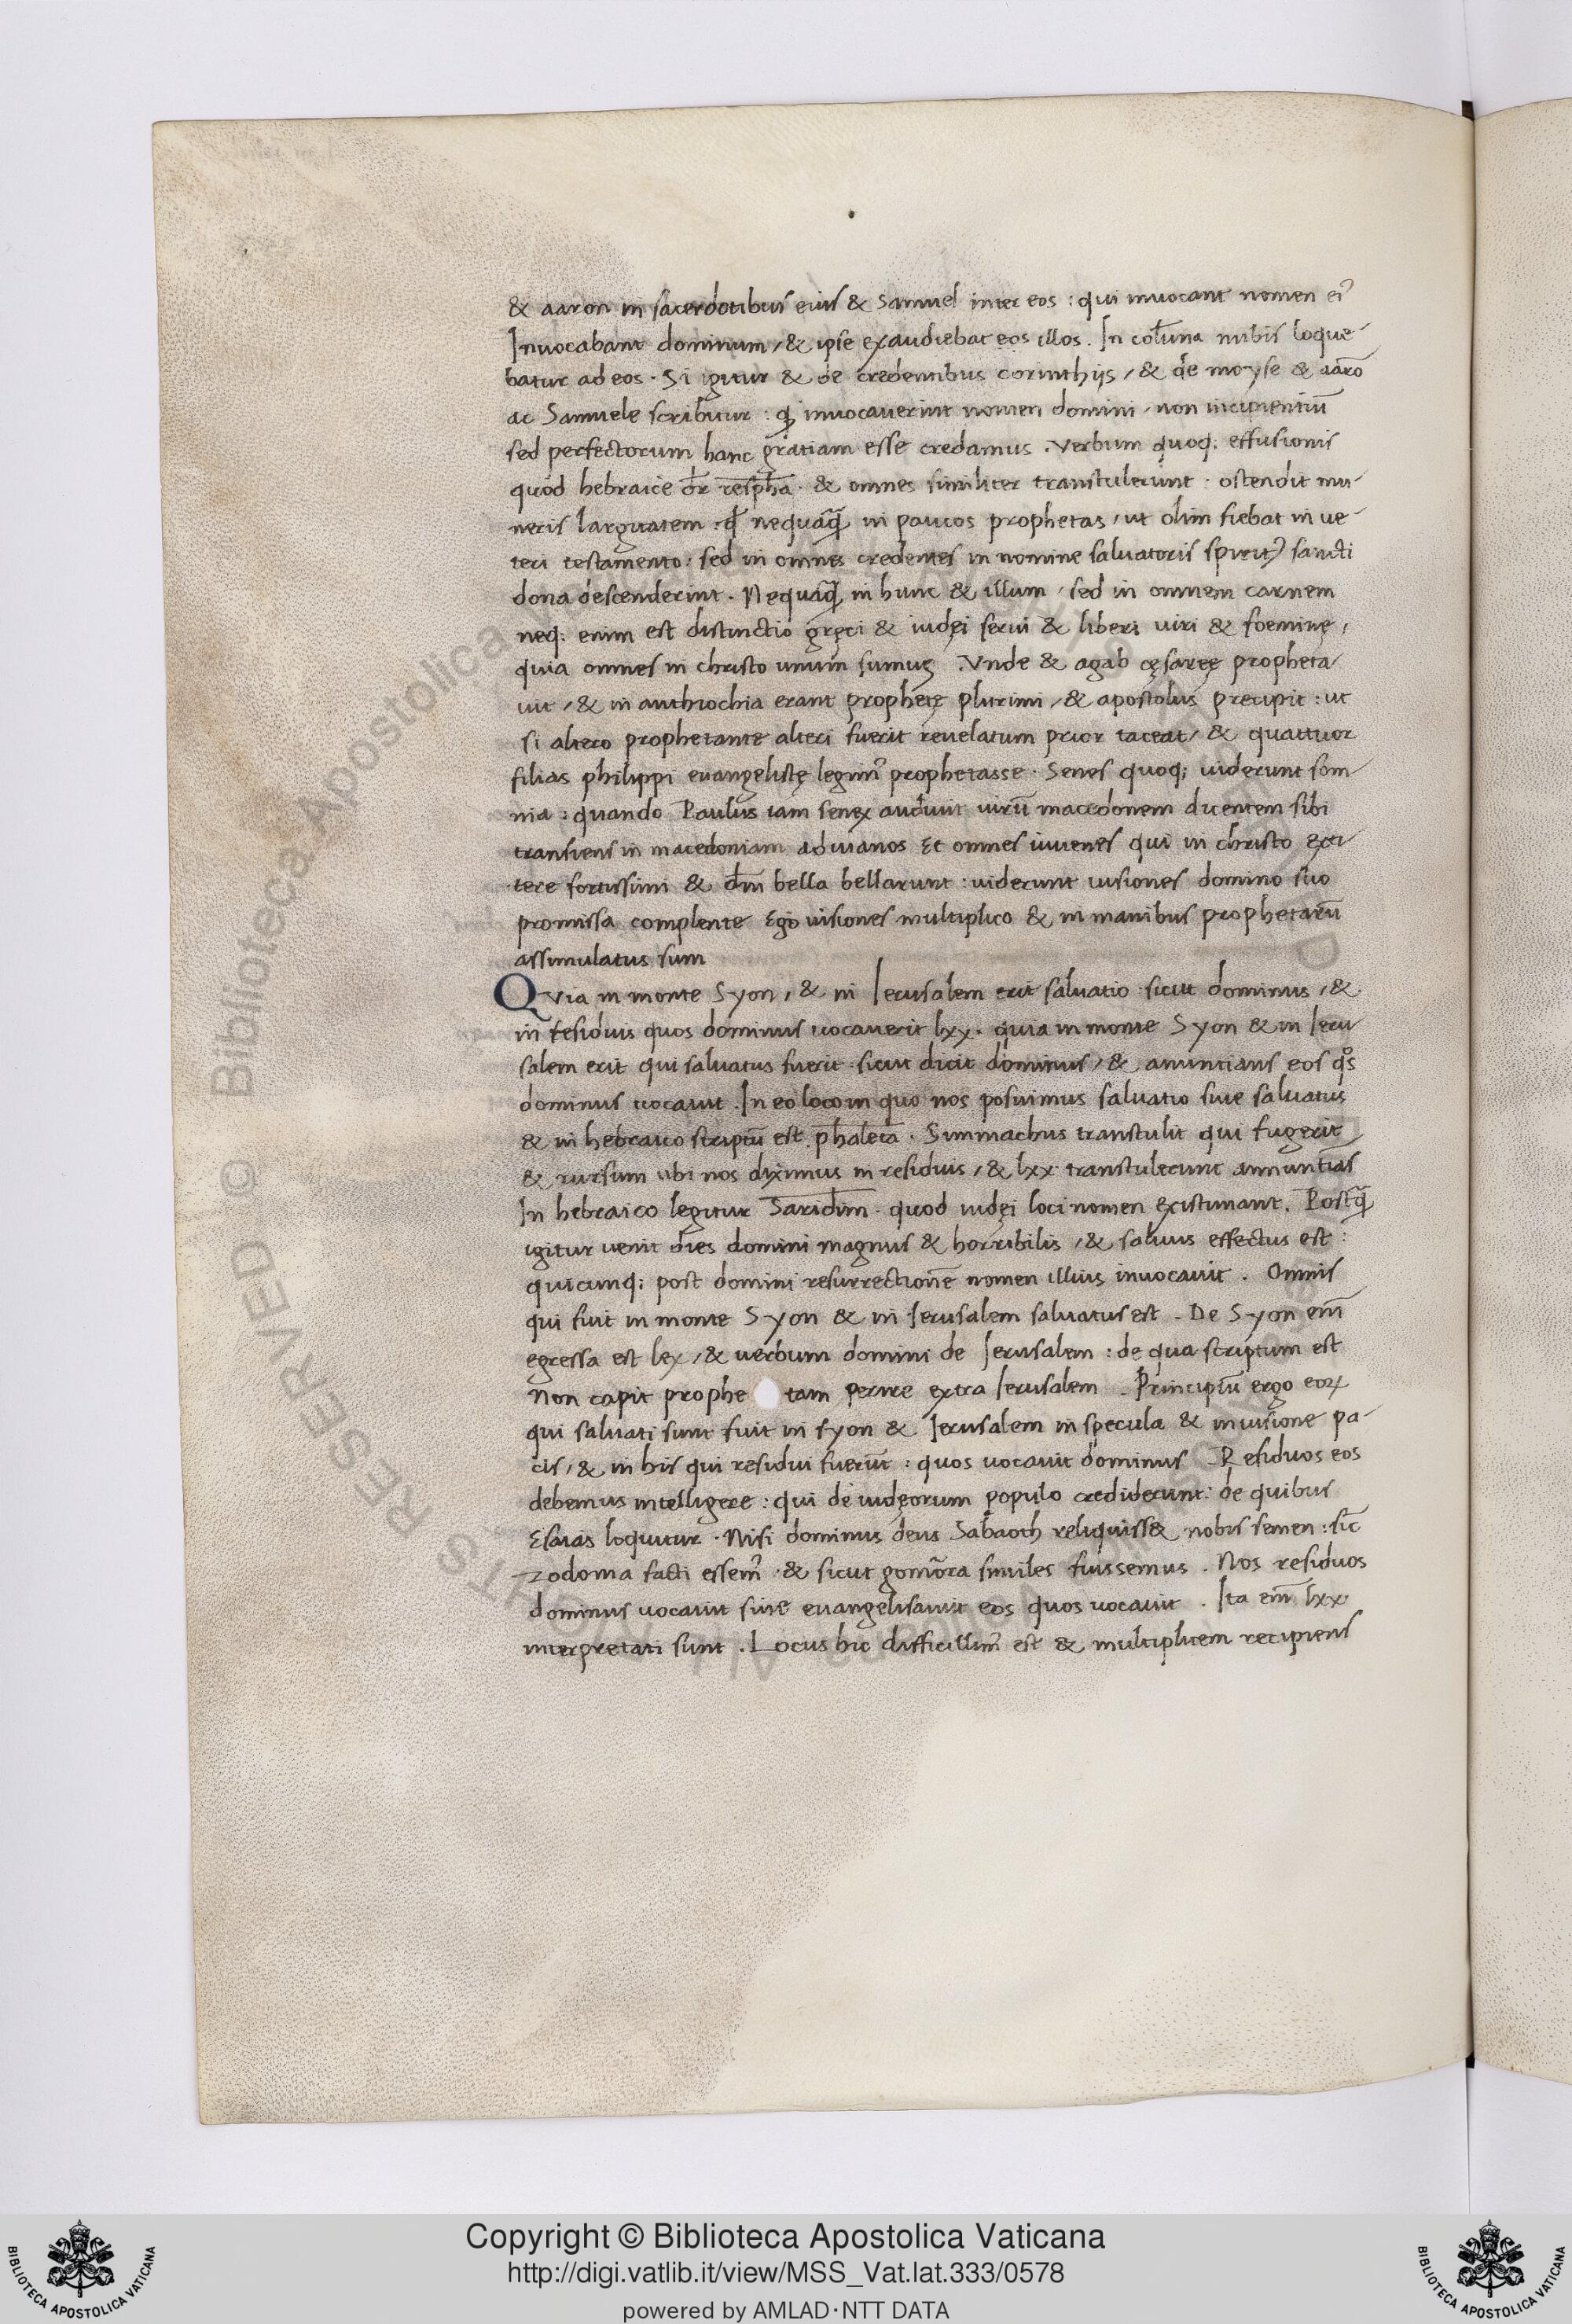 & aaron in sacerdotibus eius & Samuel inter eos : qui inuocant nomen ei᾽
Inuocabant dominum, & ipse exaudiebat eos illos. In colūna nubis loque-
batur ad eos. Si igitur & de credentibus corinthijs, & de moyse & aarō
ac Samuele scribitur : ꝙ inuocauerint nomen domini, non incipientiū
sed perfectorum hanc gratiam esse credamus. Verbum quoq; effusionis
quod hebraice dr̄ respha. & omnes similiter transtulerunt. ostendit mu-
neris largitatem : q̄ nequaq̄ in paucos prophetas, ut olim fiebat in ue-
teri testamento, sed in omnes credentes in nomine saluatoris spirit᾽ sancti
dona descenderint. Nequaq̄ in hunc & illum, sed in omnem carnem
neq; enim est distinctio gręci & iudęi serui & liberi uiri & foeminę,
quia omnes in christo unum sumus. Vnde & agab cęsareę propheta-
uit, & in anthiochia erant prophetę plurimi, & apostolus precipit : ut
si altero prophetante alteri fuerit reuelatum prior taceat, & quattuor
filias philippi euangelistę legim᾽ prophetasse. Senes quoq; uiderunt som-
nia : quando Paulus iam senex audiuit uirū macedonem dicentem sibi
transiens in macedoniam adiuuanos Et omnes iuuenes qui in christo exti-
tere fortissimi & dm̄ bella bellarunt : uiderunt uisiones domino suo
promissa complente Ego uisiones multiplico & in manibus prophetarū
assimulatus sum
Quia in monte Syon, & in Ierusalem erit saluatio sicut dominus, &
in residuis quos dominus uocauerit lxx. quia in monte Syon & in Ieru-
salem erit qui saluatus fuerit sicut dicit dominus, & anuntians eos qͦs
dominus uocauit. In eo loco in quo nos posuimus saluatio siue saluatus
& in hebraico scriptū est phaleta. Simmachus transtulit qui fugerit
& rursum ubi nos diximus in residuis, & lxx transtulerunt annuntiās
In hebraico legitur Saridim. quod iudęi loci nomen existimant. Postq̄
igitur uenit dies domini magnus & horribilis, & saluus effectus est :
quicunq; post domini resurrectionē nomen illius inuocauit. Omnis
qui fuit in monte Syon & in Ierusalem saluatus est. De Syon em̄
egressa est lex, & uerbum domini de Ierusalem : de qua scriptum est
Non capit prophe tam perire extra Ierusalem. Principiū ergo eoꝝ
qui saluati sunt fuit in syon & Ierusalem in specula & in uisione pa-
cis, & in his qui residui fuerūt : quos uocauit dominus. Residuos eos
debemus intelligere : qui de iudęorum populo crediderunt : de quibus
Esaias loquitur. Nisi dominus deus Sabaoth reliquiss& nobis semen : sic̄
zodoma facti essem᾽ . & sicut gomōra similes fuissemus. Nos residuos
dominus uocauit siue euangelisauit eos quos uocauit. Ita em̄ lxx
interpretati sunt. Locus hic difficillim᾽ est & multiplicem recipiens
Copyright © Biblioteca Apostolica Vaticana
http://digi.vatlib.it/view/MSS_Vat.lat.333/0578
powered by AMLAD·NTT DATA
BIBLIOTECA APOSTOLICA VATICANA
BIBLIOTECA APOSTOLICA VATICANA